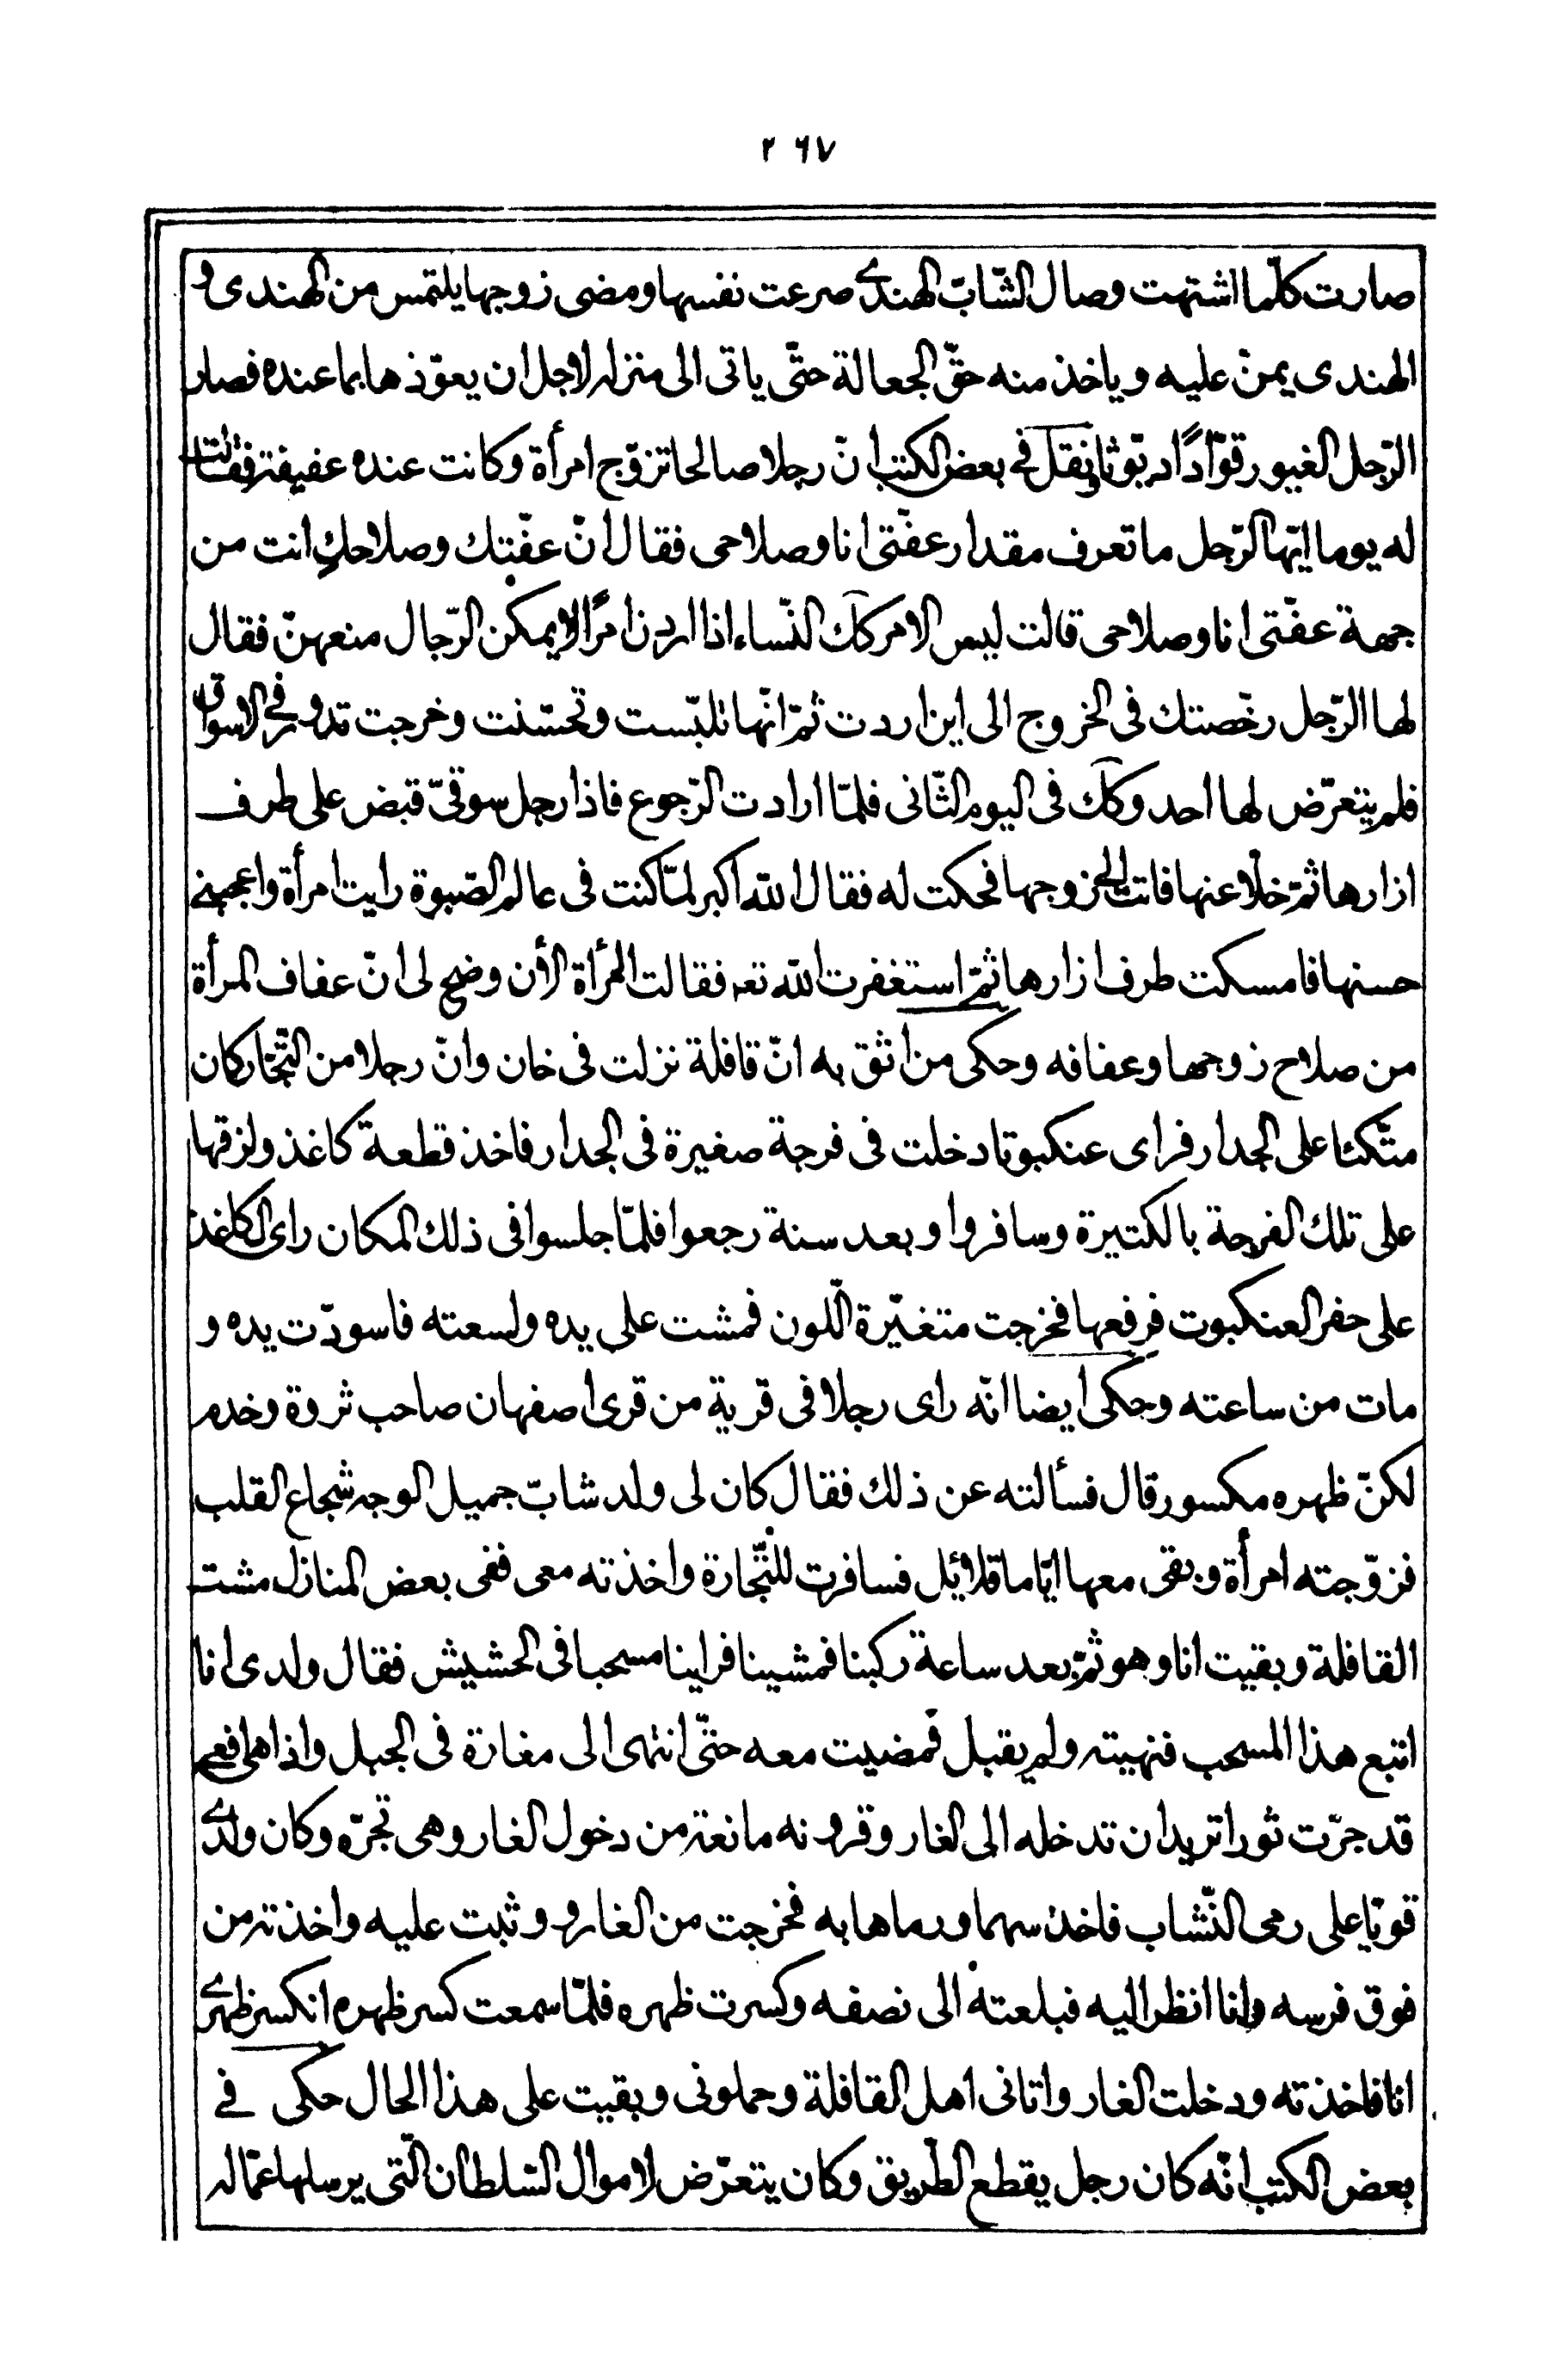 ٢٦٧
صارت كلّما اشتهت وصال الشّابّ الهندى صرعت نفسها ومضى زوجها يلتمس من الهندى و
الهندى يمنّ عليه وياخذ منه حقّ الجعالة حتّى ياتى الى منزله لاجل ان يعوّذها بما عنده فصار
الرّجل الغيور قوّادًا ديّوثا نقل فى بعض الكتب انّ رجلا صالحا تزوّج امرأة وكانت عنده عفيفة فقالت
له يوما ايّها الرّجل ما تعرف مقدار عفّتى انا وصلاحى فقال انّ عفّتك وصلاحكِ انت من
جهة عفّتى انا وصلاحى قالت ليس الامر كك النّساء اذا اردن امرًا لا يمكن الرّجال منعهنّ فقال
لها الرّجل رخّصتك فى الخروج الى اين اردت ثمّ انّها تلبّست وتحسّنت وخرجت تدور فى الاسواق
فلم يتعرّض لها احد وكك فى اليوم الثّانى فلمّا ارادت الرّجوع فاذا رجل سوقىّ قبض على طرف
ازارها ثمّ خلّا عنها فاتت الى زوجها فحكت له فقال الله اكبر لمّا كنت فى عالم الصّبوة رايت امرأة واعجبنى
حسنها فامسكت طرف ازارها ثمّ استغفرت الله تعه فقالت المرأة الأن وضح لى انّ عفاف المرأة
من صلاح زوجها وعفافه وحكى من اثق به انّ قافلة نزلت فى خان وانّ رجلا من التّجّار كان
متّكئا على الجدار فراى عنكبوتا دخلت فى فرجة صغيرة فى الجدار فاخذ قطعة كاغذ ولزقها
على تلك الفرجة بالكتيرة وسافروا وبعد سنة رجعوا فلمّا جلسوا فى ذلك المكان راى الكاغذ
على حفر العنكبوت فرفعها فخرجت متغيّرة اللّون فمشت على يده ولسعته فاسودّت يده و
مات من ساعته وحكى ايضا انّه راى رجلا فى قرية من قرى اصفهان صاحب ثروة وخدم
لكنّ ظهره مكسور قال فسألته عن ذلك فقال كان لى ولد شابّ جميل الوجه شجاع القلب
فزوّجته امرأة وبقى معها ايّاما قلائل فسافرت للتّجارة واخذته معى ففى بعض المنازل مشت
القافلة وبقيت انا وهو ثمّ بعد ساعة ركبنا فمشينا فراينا مسحبا فى الحشيش فقال ولدى انا
اتبع هذا المسحب فنهيته ولم يقبل فمضيت معه حتّى انتهى الى مغارة فى الجبل واذا هى افعى
قد جرّت ثورا تريد ان تدخله الى الغار وقرونه مانعة من دخول الغار وهى تجرّه وكان ولدى
قويّا على رمى النّشاب فاخذ سهما ورماها به فخرجت من الغار ووثبت عليه واخذته من
فوق فرسه وانا انظر اليه فبلعته الى نصفه وكسرت ظهره فلمّا سمعت كسر ظهره انكسر ظهرى
انا فاخذته ودخلت الغار واتانى اهل القافلة وحملونى وبقيت على هذا الحال حكى فى
بعض الكتب انّه كان رجل يقطع الطّريق وكان يتعرّض لاموال السّلطان الّتى يرسلها عمّاله